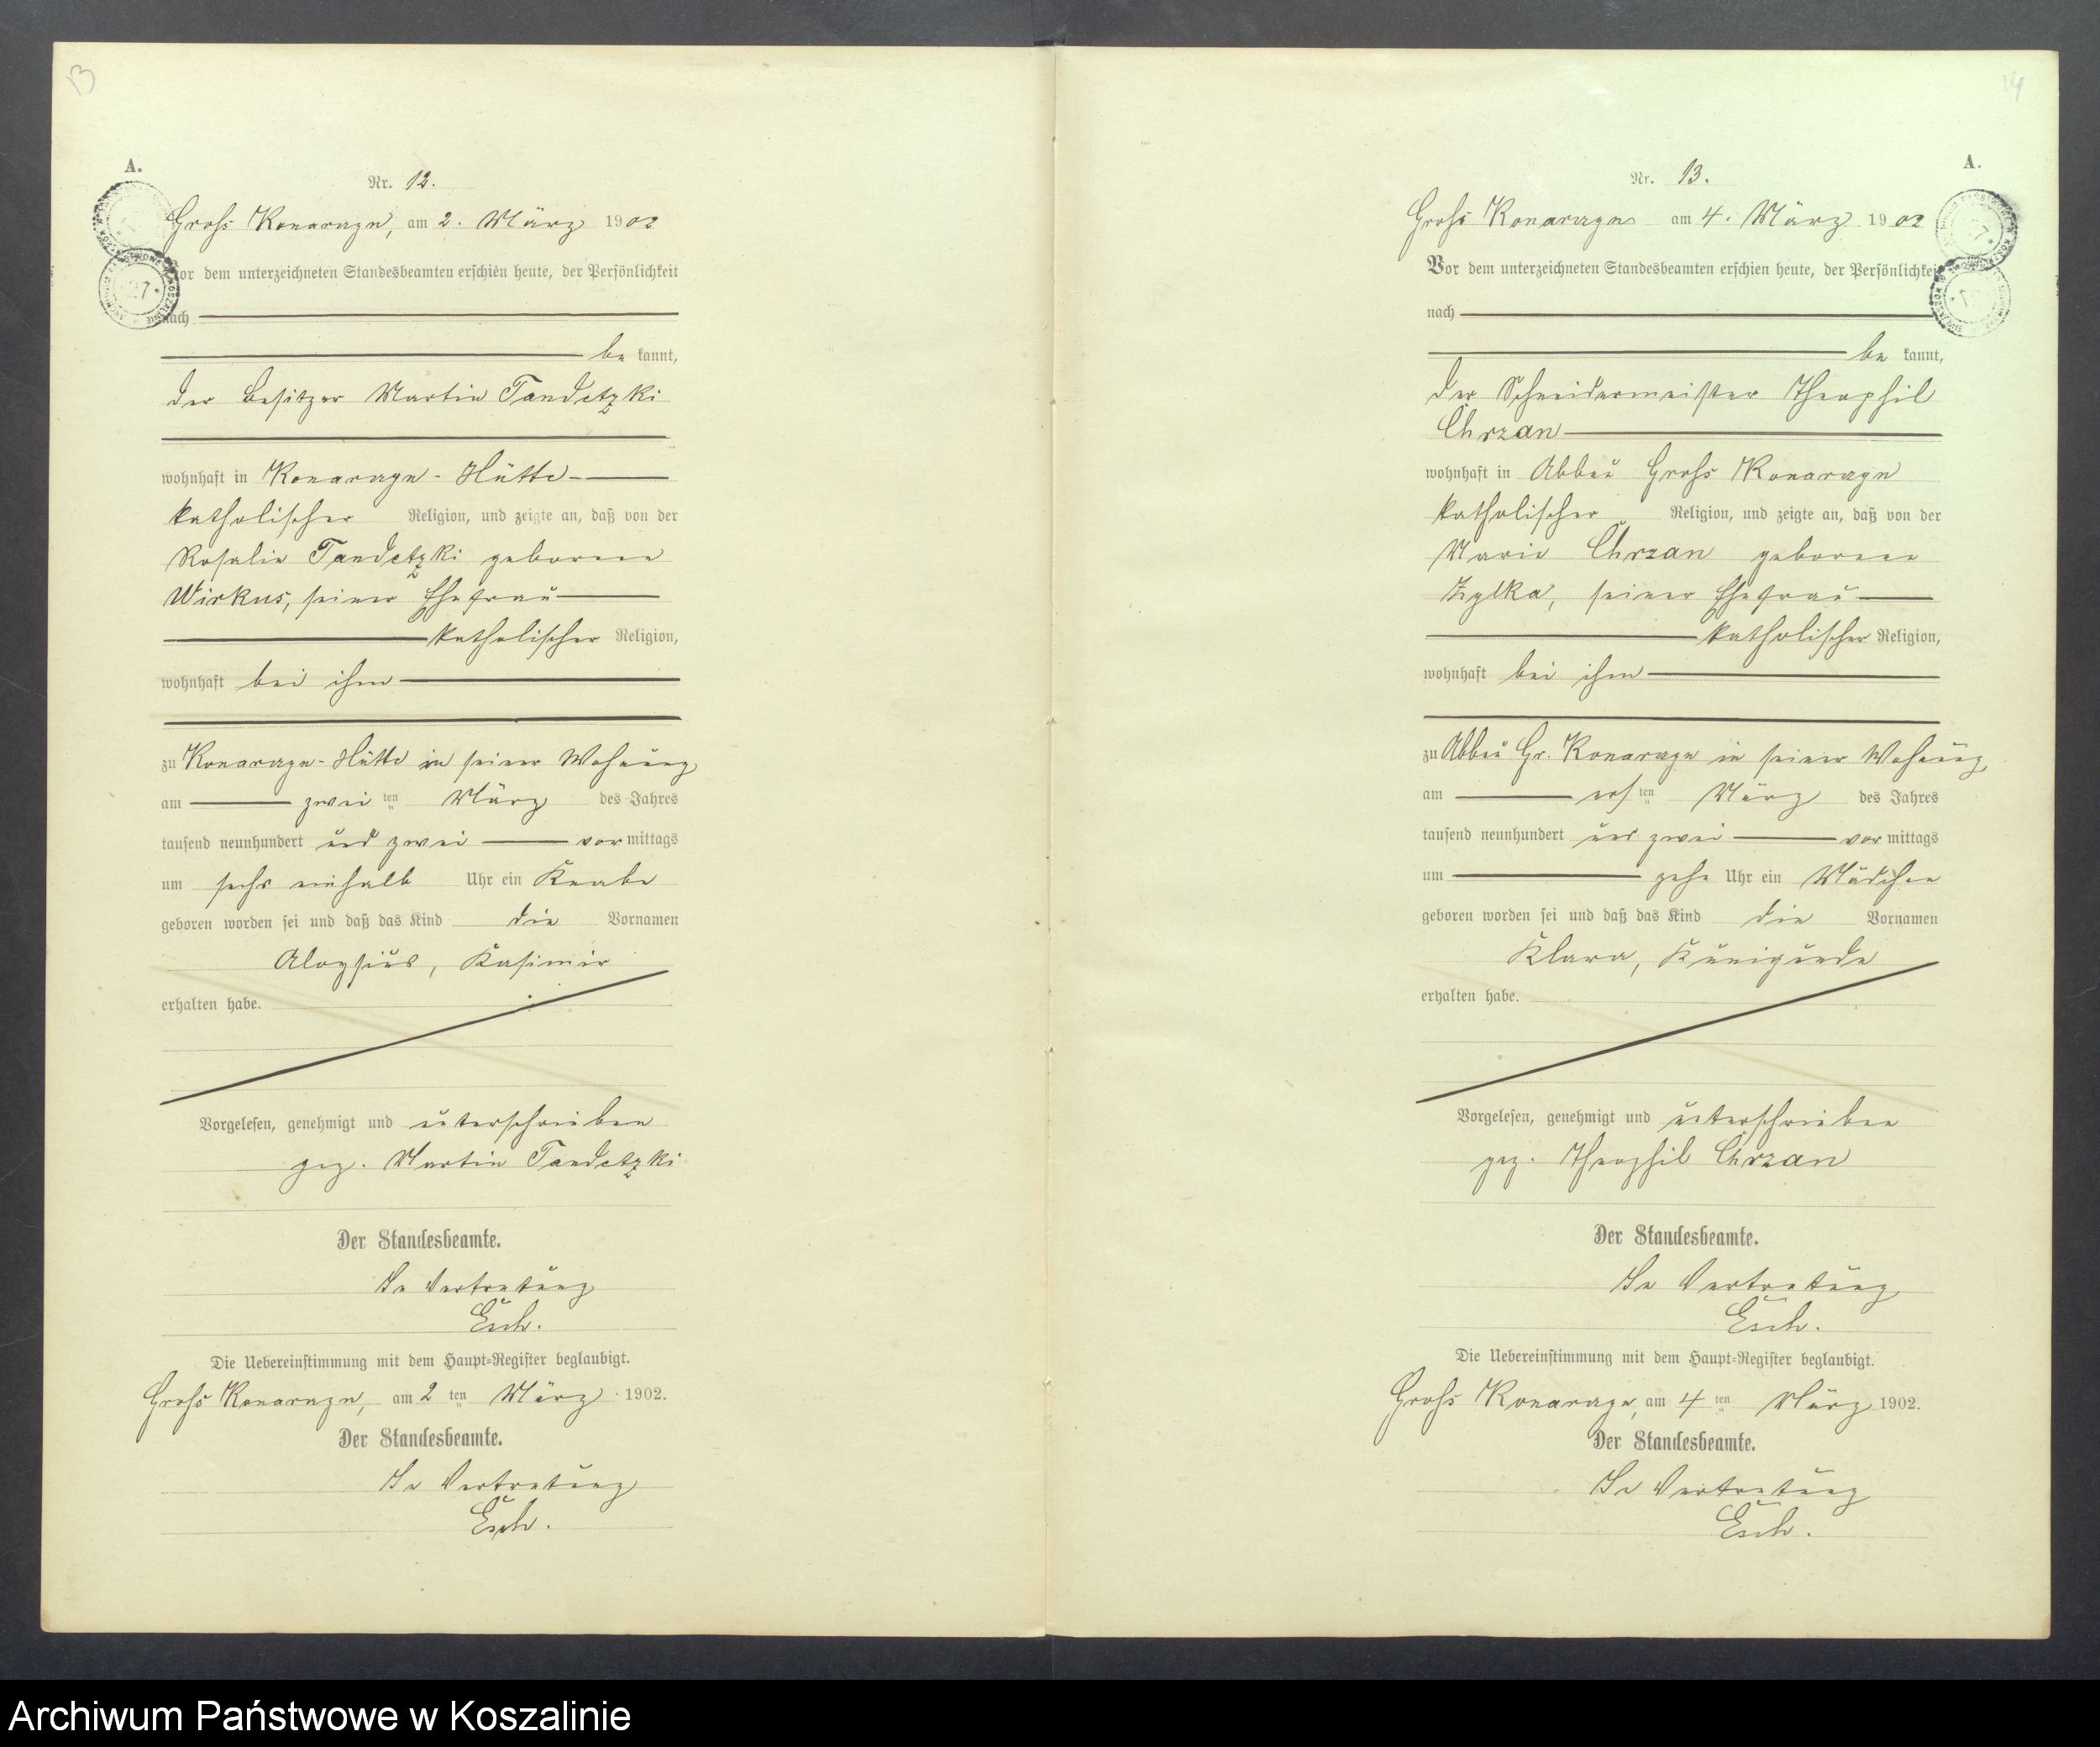 13
A.
Nr. 12.
Gross Konarczyn, am 2. März 1902
Vor dem unterzeichneten Standesbeamten erschien heute, der Persönlichkeit
nach
be kannt,
der Besitzer Martin Tandetzki
wohnhaft in Konarczyn-Hütte
katholischer Religion, und zeigte an, daß von der
Rosalie Tandetzki geborene
Wirkus, seiner Ehefrau
katholischer Religion,
wohnhaft bei ihm
zu Konarczyn-Hütte in seiner Wohnung
am zwei ten März des Jahres
tausend neunhundert und zwei vor mittags
um sechs einhalb Uhr ein Knabe
geboren worden sei und daß das Kind die Vornamen
Aloysius, Kasimir
erhalten habe.
Vorgelesen, genehmigt und unterschrieben
gez. Martin Tandetzki
Der Standesbeamte.
In Vertretung
Esch.
Die Uebereinstimmung mit dem Haupt-Register beglaubigt.
Gross Konarczyn, am 2 ten März 1902.
Der Standesbeamte.
In Vertretung
Esch.
14
A.
Nr. 13.
Gross Konarczyn am 4. März 1902
Vor dem unterzeichneten Standesbeamten erschien heute, der Persönlichkeit
nach
be kannt,
der Schneidermeister Theophil
Chrzan
wohnhaft in Abbau Gross Konarczyn
katholischer Religion, und zeigte an, daß von der
Marie Chrzan geborene
Zylka, seiner Ehefrau
katholischer Religion,
wohnhaft bei ihm
zu Abbau Gr. Konarczyn in seiner Wohnung
am ers ten März des Jahres
tausend neunhundert und zwei vor mittags
um zehn Uhr ein Mädchen
geboren worden sei und daß das Kind die Vornamen
Klara, Kunigunde
erhalten habe.
Vorgelesen, genehmigt und unterschrieben
gez. Theophil Chrzan
Der Standesbeamte.
In Vertretung
Esch.
Die Uebereinstimmung mit dem Haupt-Register beglaubigt.
Gross Konarczyn, am 4 ten März 1902.
Der Standesbeamte.
In Vertretung
Esch.
Archiwum Państwowe w Koszalinie